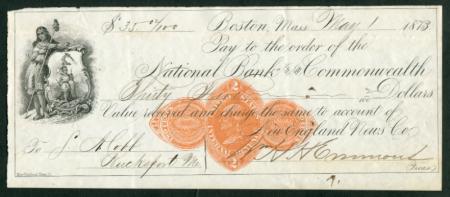 $35 00/100 Boston, Mass May 1 1873
Pay to the order of the
National Bank of the Commonwealth
Thirty Dollars
Value received and charge the same to account of
To S A Cobb New England News Co
Bucksport Me
Treas.